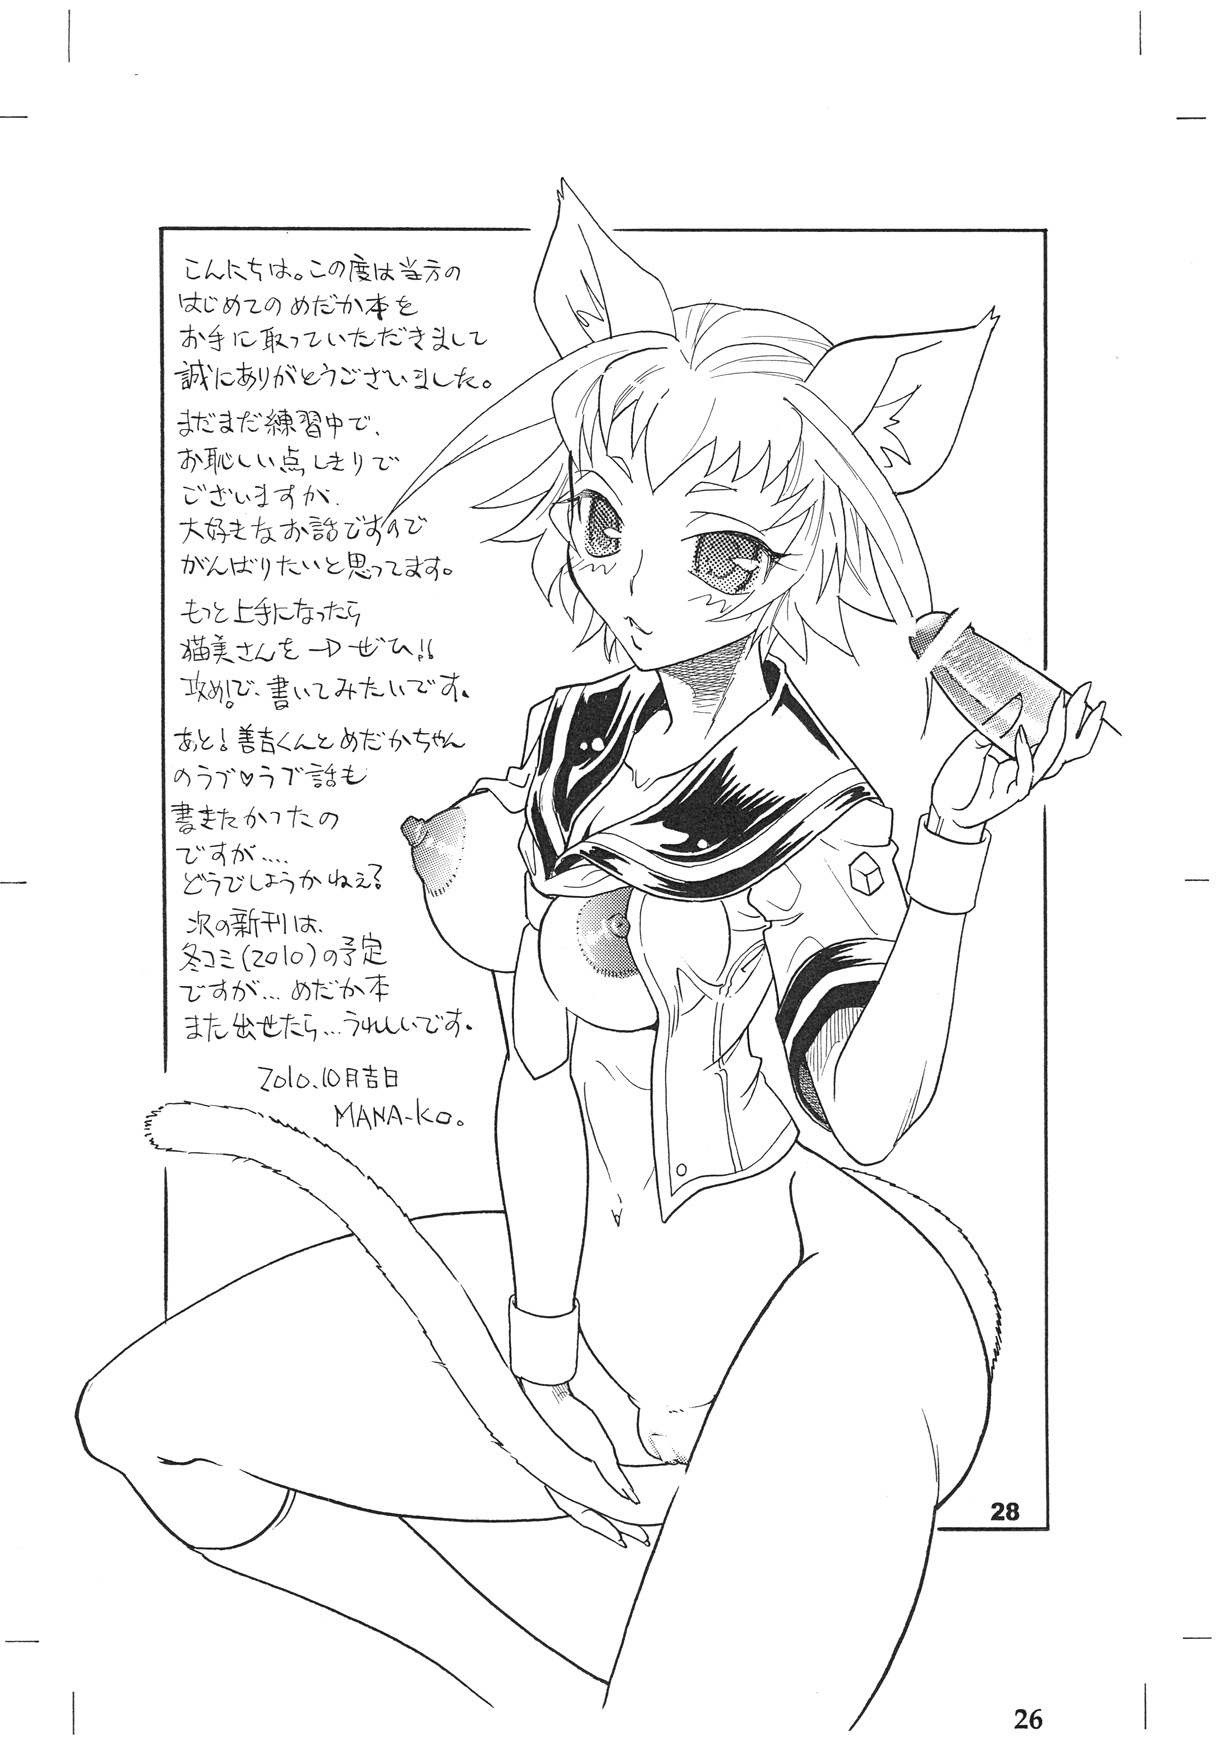 こんにちは。この度は当方の
はじめてのめだか本を
お手に取っていただきまして
誠にありがとうございました。
まだまだ練習中で、
お恥しい点しきりで
ございますが、
大好きなお話ですので
がんばりたいと思ってます。
もっと上手になったら
猫美さんを ぜひ!!
攻めで、書いてみたいです。
あと!善吉くんとめだかちゃん
のラブ♡ラブ話も
書きたかったの
ですが....
どうでしょうかねぇ?
次の新刊は、
冬コミ(2010)の予定
ですが...めだか本
また出せたら...うれしいです。
2010.10月吉日
MANA-KO。
28
26